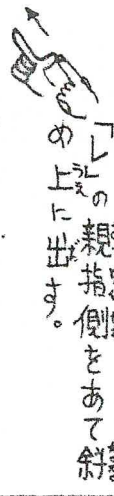 「レの親指側をあて斜
め上に出す。